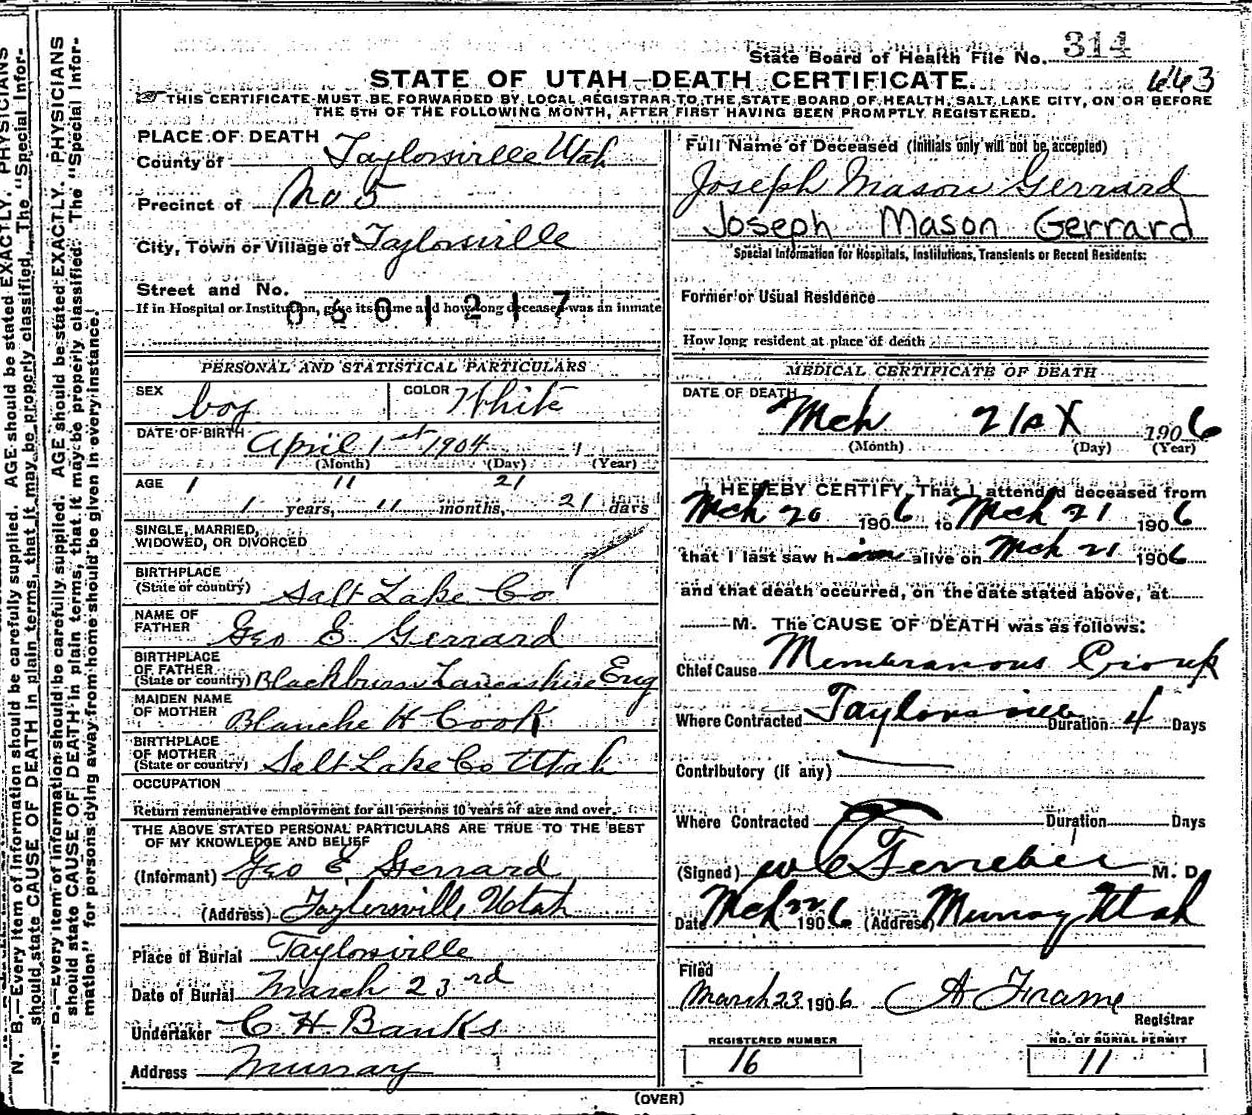 State Board of Health File No. 314
STATE OF UTAH—DEATH CERTIFICATE. 663
THIS CERTIFICATE MUST BE FORWARDED BY LOCAL REGISTRAR TO THE STATE BOARD OF HEALTH, SALT LAKE CITY, ON OR BEFORE
THE 5TH OF THE FOLLOWING MONTH, AFTER FIRST HAVING BEEN PROMPTLY REGISTERED.
PLACE OF DEATH
County of Taylorsville Utah
Precinct of No 5
City, Town or Village of Taylorsville
Street and No.
0601217
If in Hospital or Institution, give its name and how long deceased was an inmate
PERSONAL AND STATISTICAL PARTICULARS
SEX boy COLOR White
DATE OF BIRTH April 1st 1904
(Month) (Day) (Year)
AGE 1 11 21
1 years, 11 months, 21 days
SINGLE, MARRIED,
WIDOWED, OR DIVORCED
BIRTHPLACE
(State or country) Salt Lake Co
NAME OF
FATHER Geo E Gerrard
BIRTHPLACE
OF FATHER
(State or country) Blackburn Lancashire Eng
MAIDEN NAME
OF MOTHER Blanche H Cook
BIRTHPLACE
OF MOTHER
(State or country) Salt Lake Co Utah
OCCUPATION
Return remunerative employment for all persons 10 years of age and over.
THE ABOVE STATED PERSONAL PARTICULARS ARE TRUE TO THE BEST
OF MY KNOWLEDGE AND BELIEF
(Informant) Geo E Gerrard
(Address) Taylorsville Utah
Place of Burial Taylorsville
Date of Burial March 23rd
Undertaker C H Banks
Address Murray
Full Name of Deceased (Initials only will not be accepted)
Joseph Mason Gerrard
Joseph Mason Gerrard
Special Information for Hospitals, Institutions, Transients or Recent Residents:
Former or Usual Residence
How long resident at place of death
MEDICAL CERTIFICATE OF DEATH
DATE OF DEATH
Mch 21st 1906
(Month) (Day) (Year)
I HEREBY CERTIFY, That I attended deceased from
Mch 20 1906, to Mch 21 1906
that I last saw him alive on Mch 21 1906
and that death occurred, on the date stated above, at
M. The CAUSE OF DEATH was as follows:
Chief Cause Membranous Croup
Where Contracted Taylorsville Duration 4 Days
Contributory (if any)
Where Contracted Duration Days
(Signed) M. D.
Date Mch 22 1906 (Address) Murray Utah
Filed
March 23 1906 A Frame
Registrar
REGISTERED NUMBER
16
NO. OF BURIAL PERMIT
11
(OVER)
N. B.—Every item of information should be carefully supplied. AGE should be stated EXACTLY. PHYSICIANS
should state CAUSE OF DEATH in plain terms, that it may be properly classified. The "Special Infor-
N. B.—Every item of information should be carefully supplied. AGE should be stated EXACTLY. PHYSICIANS
should state CAUSE OF DEATH in plain terms, that it may be properly classified. The "Special Infor-
mation" for persons dying away from home should be given in every instance.